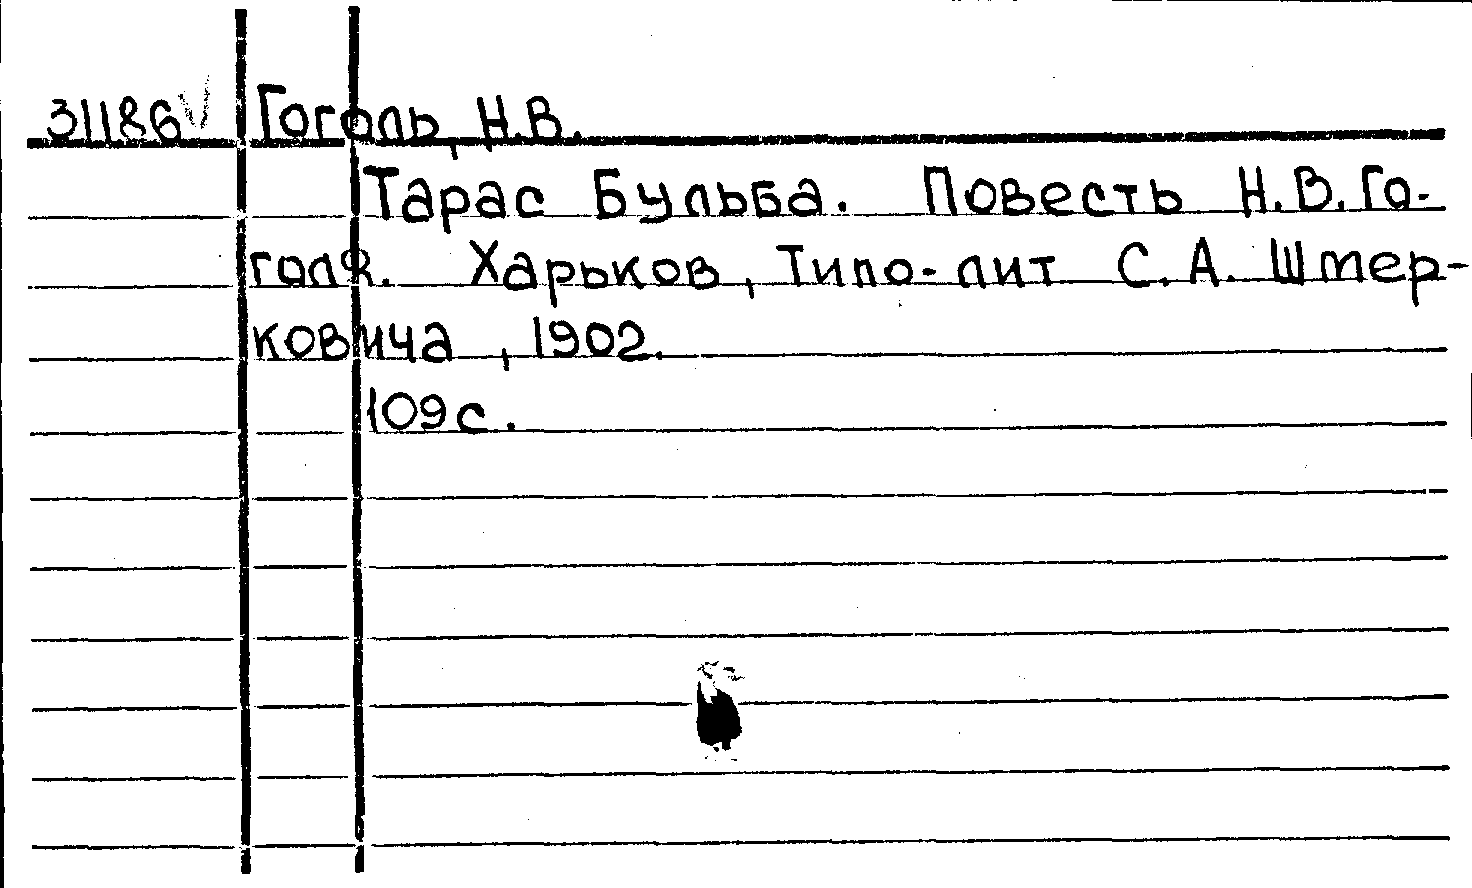 31186 V Гоголь, Н.В.
Тарас Бульба. Повесть Н.В.Го-
голя. Харьков, Типо-лит С.А. Штер-
ковича, 1902.
109с.